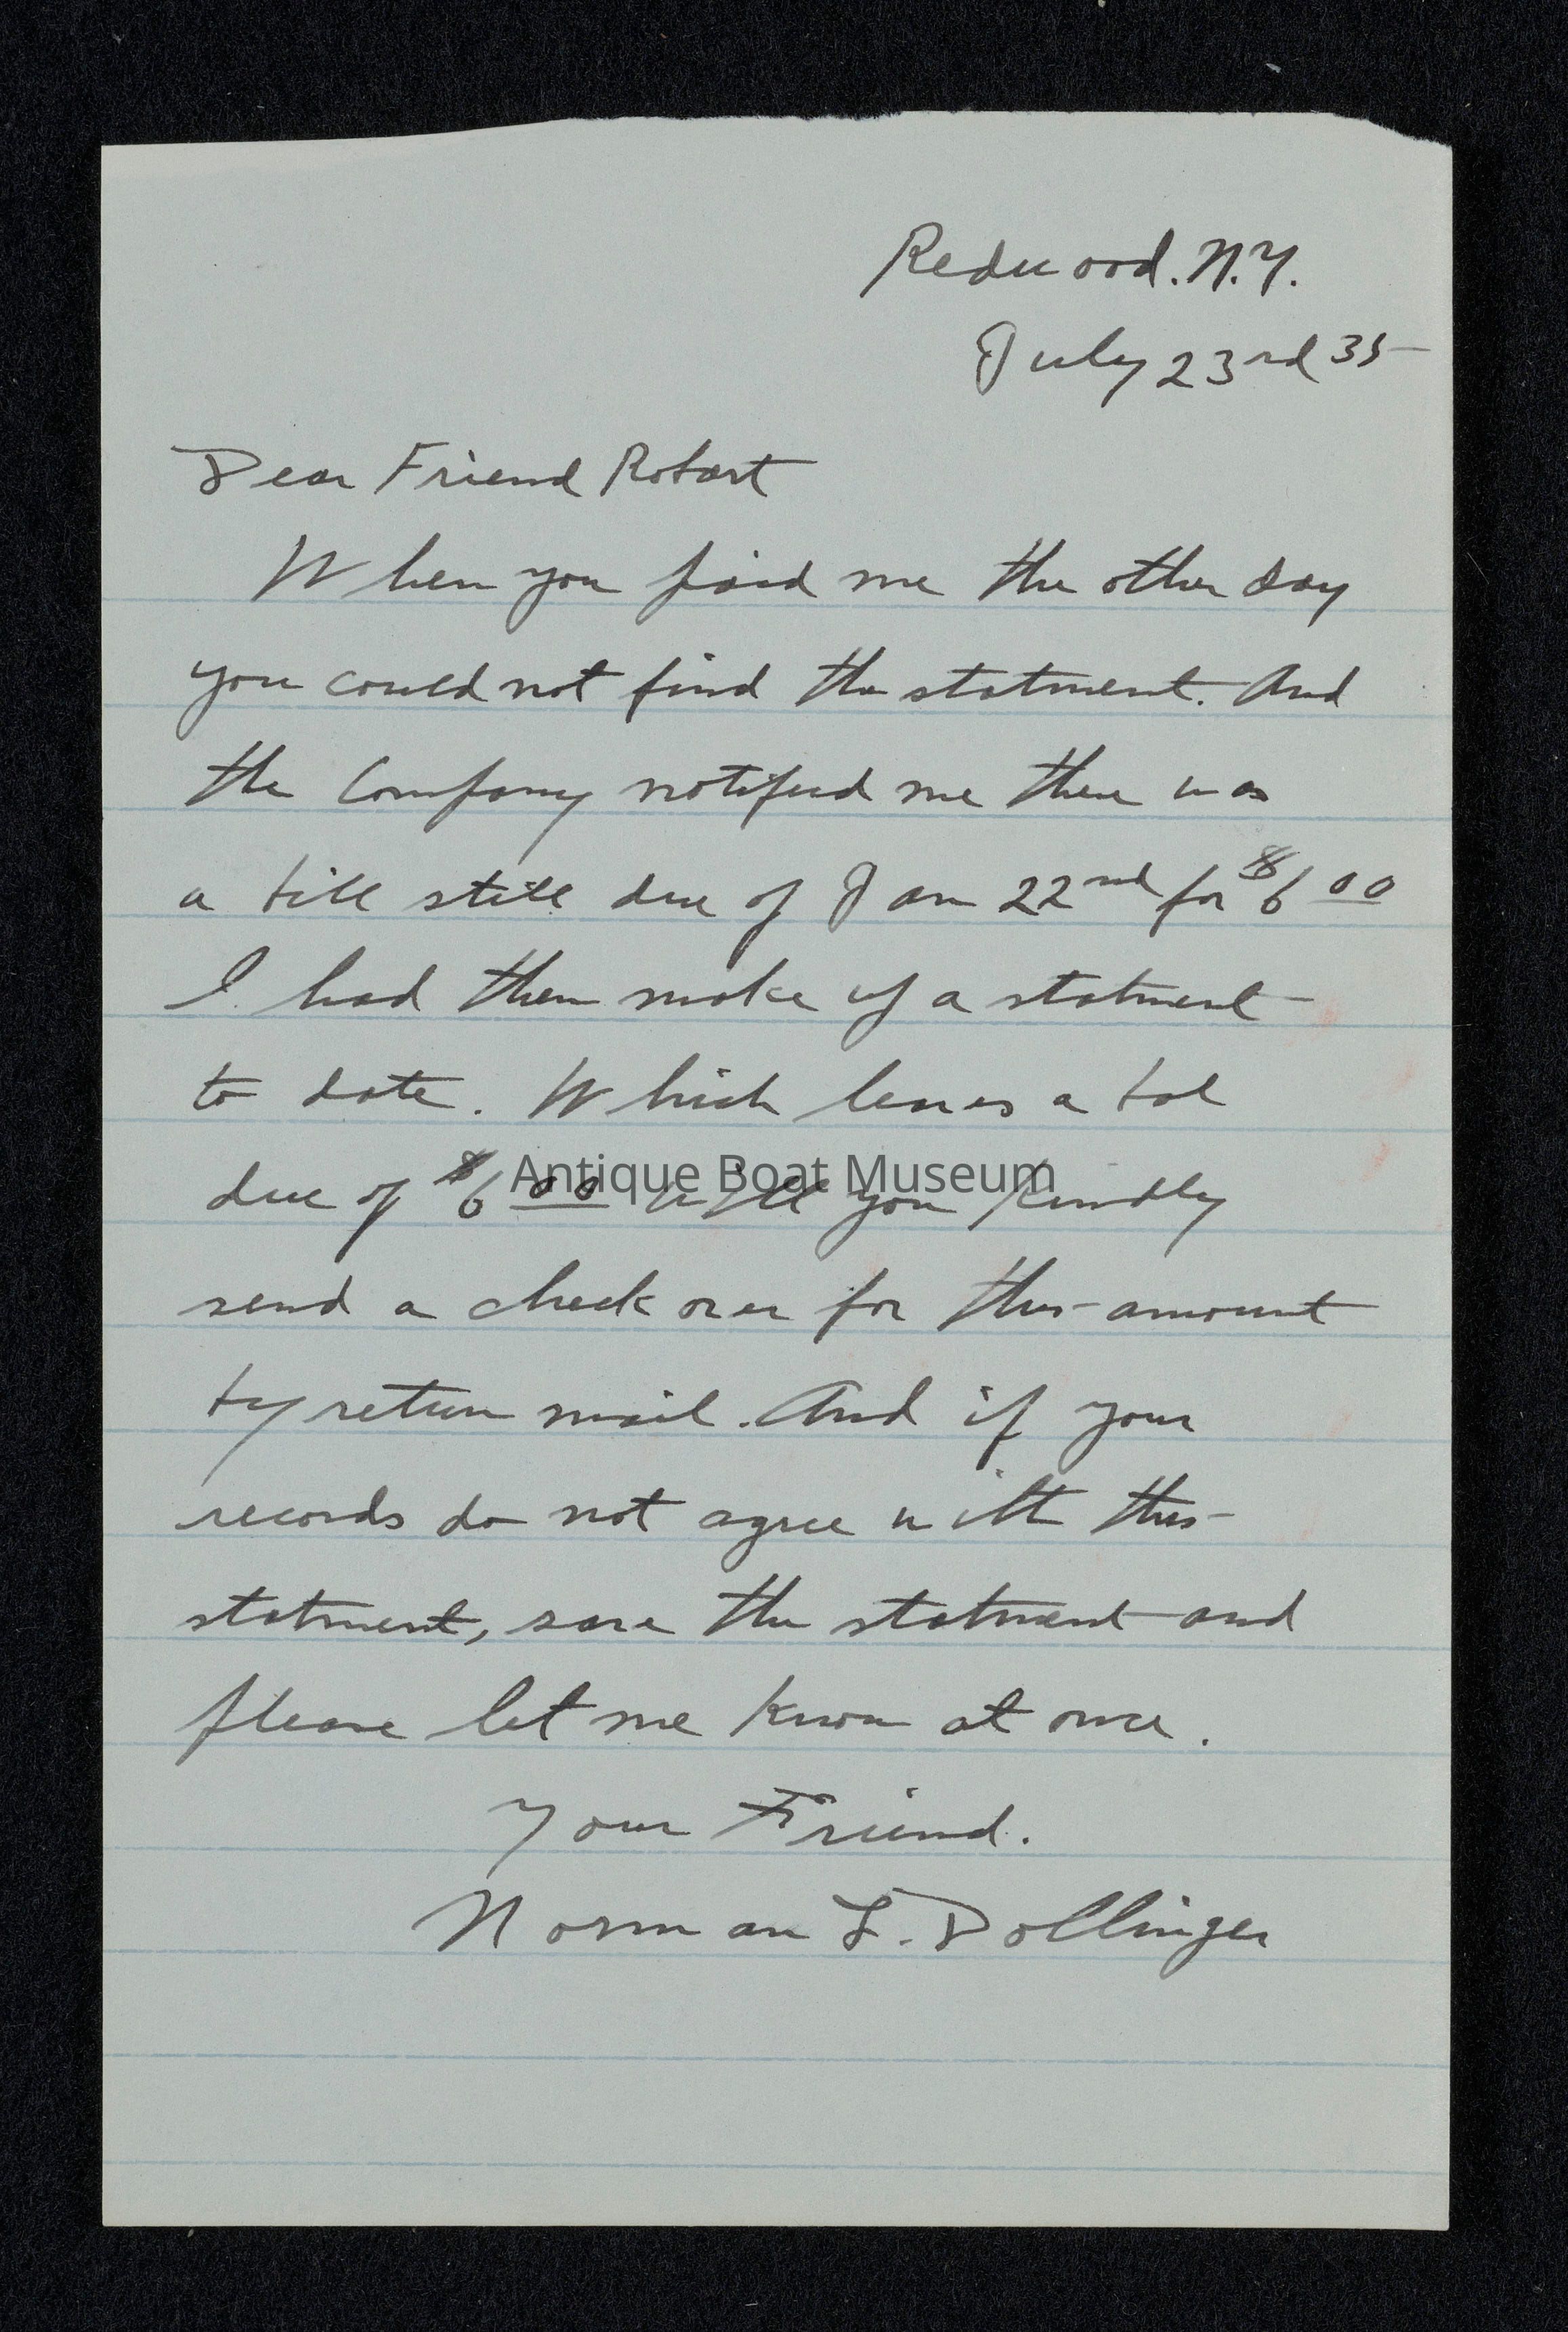 Redwood. N.Y.
July 23rd 35
Dear Friend Robart
When you paid me the other day
you could not find the statment. And
the Company notified me there was
a bill still due of Jan 22nd for $6.00
I had them make up a statment
to date. Which leaves a bal
due of $6.00 will you kindly
Antique Boat Museum
send a check over for this amount
by return mail. And if your
records do not agree with this
statment, save the statment and
please let me know at once.
Your Friend.
Norman L. Dollinger